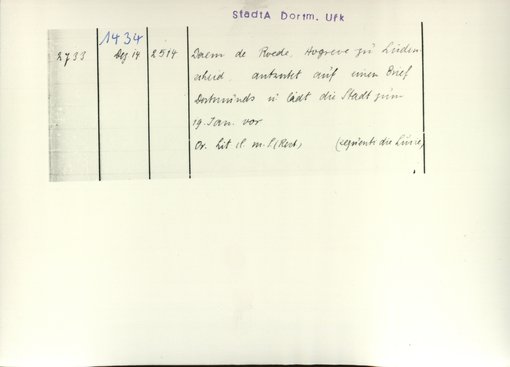 StadtA Dortm. Ufk
1434
2733 Dez 14 2514 Daem de Roede, Hogreve zu Lüden-
scheid, antwortet auf einen Brief
Dortmunds u lädt die Stadt zum
19. Jan. vor
Or. Lit cl m. S (Rest) (sequenti die Lucie)